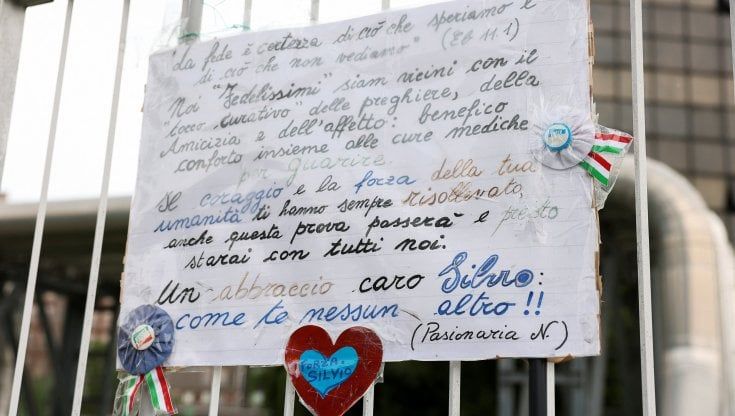 "La fede è certezza di ciò che speriamo e
di ciò che non vediamo" (Eb 11.1)
Noi "Fedelissimi" siam vicini con il
"tocco curativo" delle preghiere, della
Amicizia e dell'affetto: benefico
conforto insieme alle cure mediche
per guarire.
Il coraggio e la forza della tua
umanità ti hanno sempre risollevato,
anche questa prova passerà e presto
starai con tutti noi.
Un abbraccio caro Silvio:
come te nessun altro!!
(Pasionaria N.)
FORZA
SILVIO